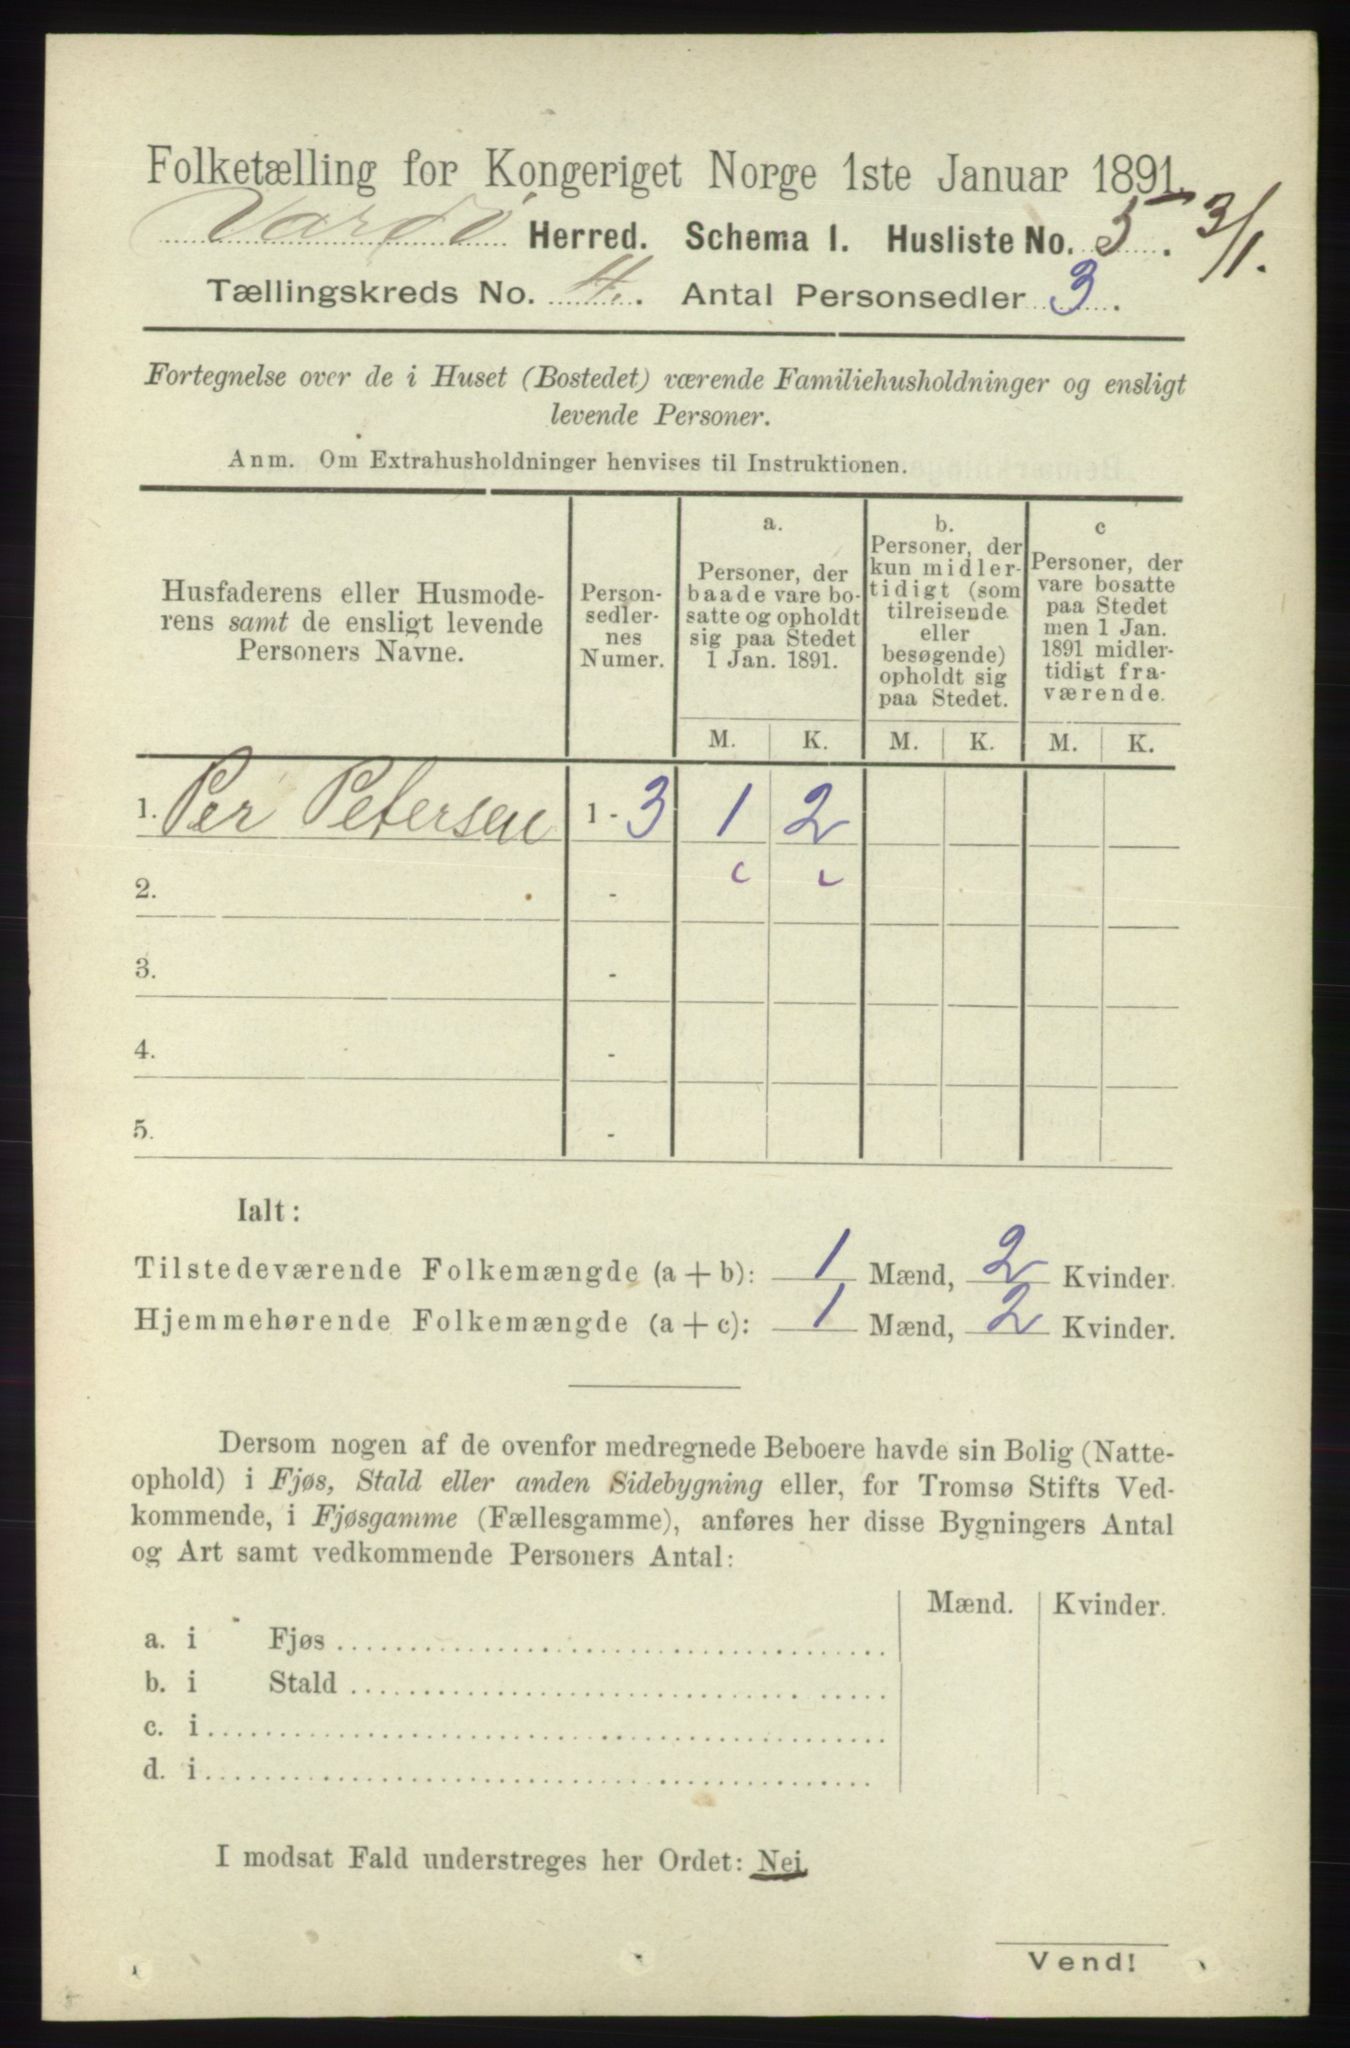 Folketælling for Kongeriget Norge 1ste Januar 1891.
Vardø Herred. Schema I. Husliste No. 5. 3/1.
Tællingskreds No. 4. Antal Personsedler 3.
Fortegnelse over de i Huset (Bostedet) værende Familiehusholdninger og ensligt
levende Personer.
Anm. Om Extrahusholdninger henvises til Instruktionen.
Husfaderens eller Husmode-
rens samt de ensligt levende
Personers Navne.
Person-
sedler-
nes
Numer.
a.
Personer, der
baade vare bo-
satte og opholdt
sig paa Stedet
1 Jan. 1891.
b.
Personer, der
kun midler-
tidigt (som
tilreisende
eller
besøgende)
opholdt sig
paa Stedet.
c
Personer, der
vare bosatte
paa Stedet
men 1 Jan.
1891 midler-
tidigt fra-
værende.
M. K. M. K. M. K.
1. Per Petersen 1 - 3 1 2
2. -
3. -
4. -
5. -
Ialt:
Tilstedeværende Folkemængde (a + b): 1 Mænd, 2 Kvinder.
Hjemmehørende Folkemængde (a + c): 1 Mænd, 2 Kvinder.
Dersom nogen af de ovenfor medregnede Beboere havde sin Bolig (Natte-
ophold) i Fjøs, Stald eller anden Sidebygning eller, for Tromsø Stifts Ved-
kommende, i Fjøsgamme (Fællesgamme), anføres her disse Bygningers Antal
og Art samt vedkommende Personers Antal:
Mænd. Kvinder.
a. i Fjøs
b. i Stald
c. i
d. i
I modsat Fald understreges her Ordet: Nei
Vend!